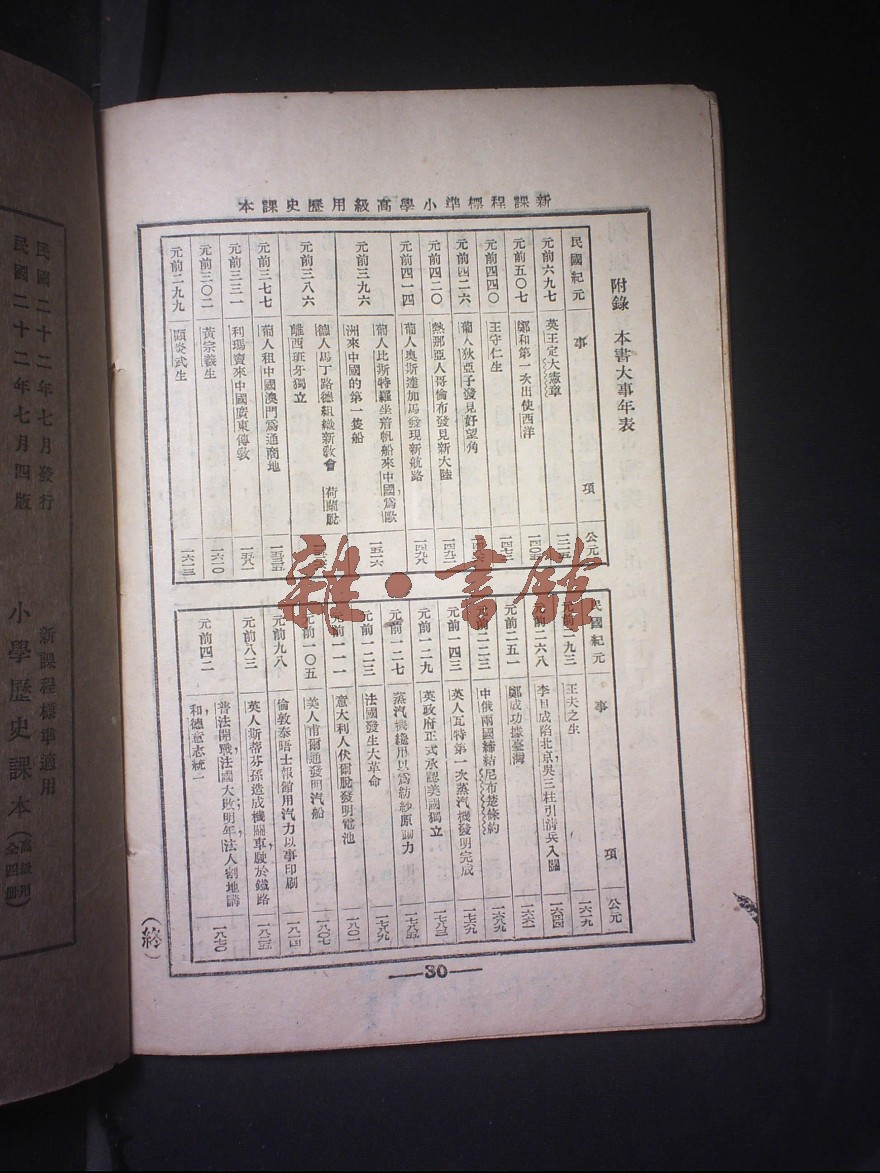 新課程標準小學高級用歷史課本
附錄　本書大事年表
民國紀元　事　項　公元
元前六九七　英王定大憲章　一二一五
元前五〇七　鄭和第一次出使西洋　一四〇五
元前四四〇　王守仁生　一四七二
元前四二六　葡人狄亞子發見好望角
元前四二〇　熱那亞人哥倫布發見新大陸　一四九二
元前四一四　葡人奧斯達加馬發現新航路　一四九八
元前三九六　葡人比斯特羅坐着帆船來中國，爲歐
洲來中國的第一隻船　一五一六
元前三八六　德人馬丁路德組織新敎會　荷蘭脫
離西班牙獨立
元前三七七　葡人租中國澳門爲通商地　一五三五
元前三三一　利瑪竇來中國廣東傳敎　一五八一
元前三〇二　黃宗羲生　一六一〇
元前二九九　顧炎武生　一六一三
民國紀元　事　項　公元
元前二九三　王夫之生　一六一九
元前二六八　李自成陷北京，吳三桂引清兵入關　一六四四
元前二五一　鄭成功據臺灣　一六六一
元前二二三　中俄兩國締結尼布楚條約　一六八九
元前一四三　英人瓦特第一次蒸汽機發明完成　一七六九
元前一二九　英政府正式承認美國獨立　一七八三
元前一二七　蒸汽機纔用以爲紡紗原動力　一七八五
元前一二三　法國發生大革命　一七八九
元前一一一　意大利人伏爾脫發明電池　一八〇一
元前一〇五　美人甫爾通發明汽船　一八〇七
元前九八　倫敦泰晤士報館用汽力以事印刷　一八一四
元前八三　英人斯蒂芬孫造成機關車，駛於鐵路　一八二五
元前四二　普法開戰，法國大敗明年，法人割地講
和，德意志統一　一八七〇
（終）
30
民國二十二年七月發行
民國二十二年七月四版
新課程標準適用
小學歷史課本（高級用全四册）
雜·書館